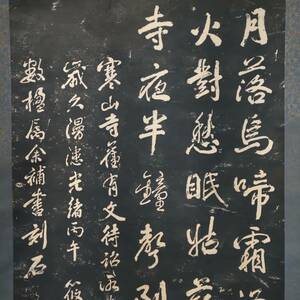 月落烏啼霜
火對愁眠姑
寺夜半鐘聲到
寒山寺舊有文待詔
歲久漫漶光緒丙午筱
數楹屬余補書刻石